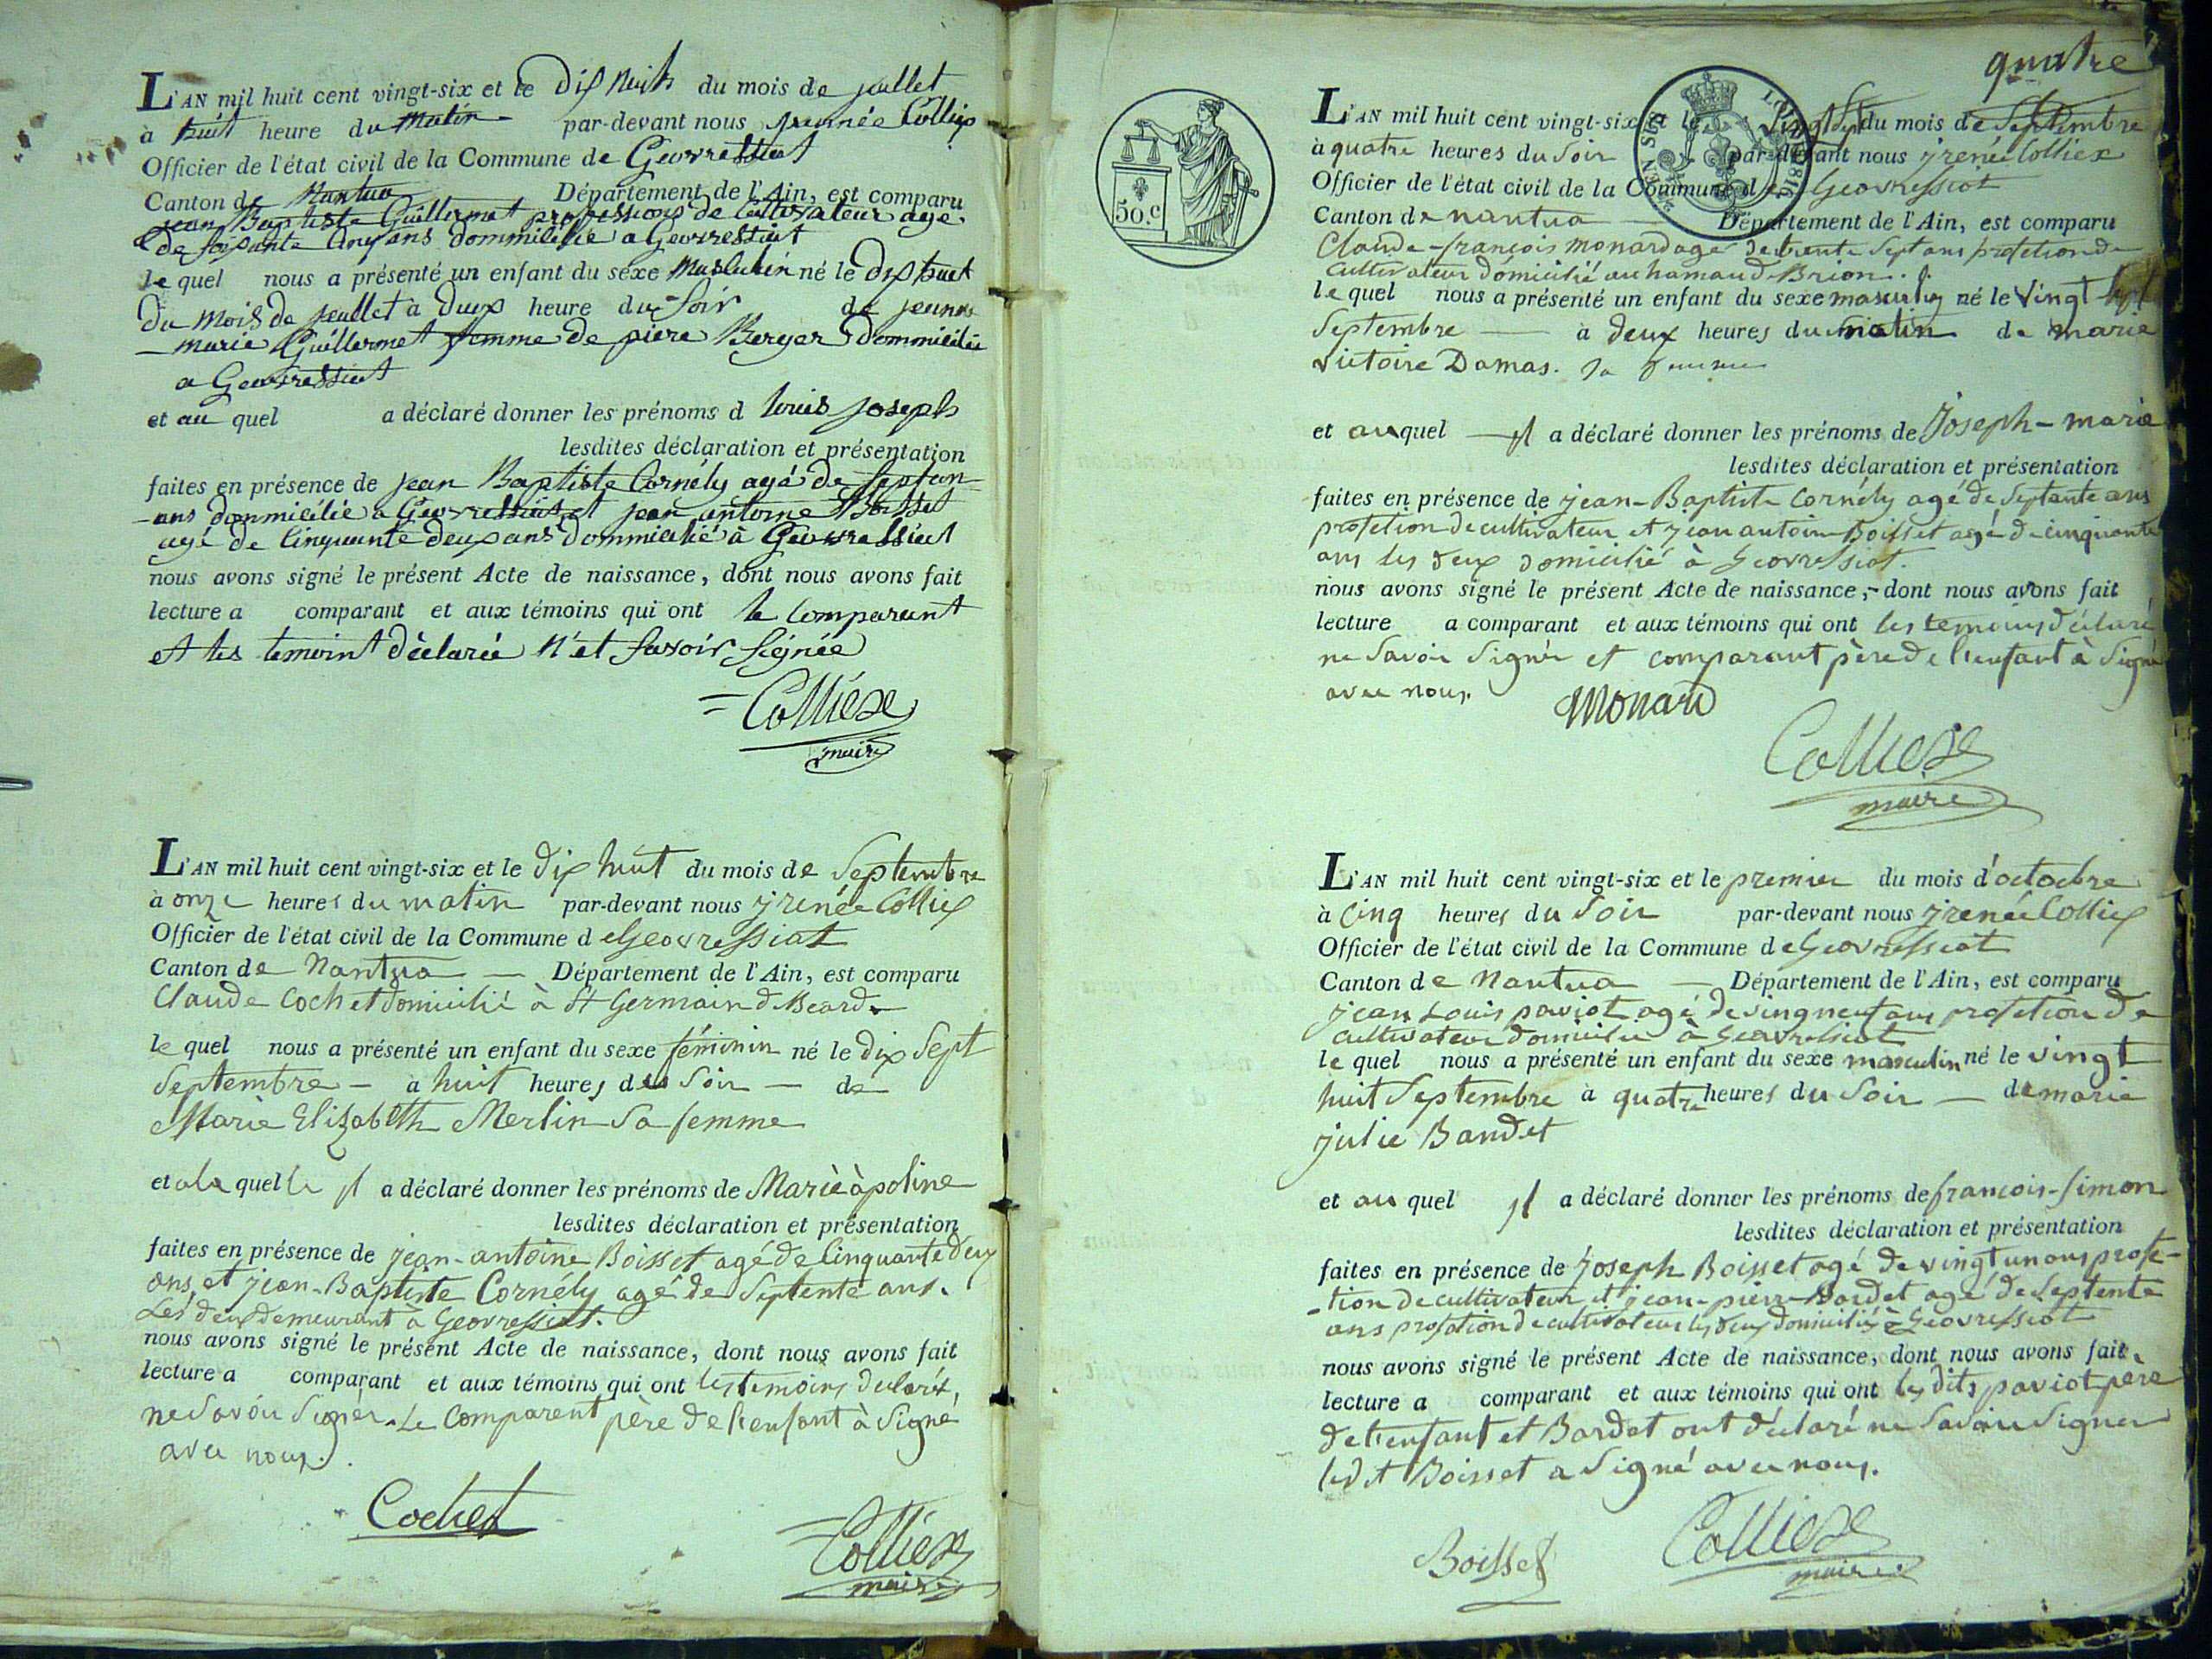 L'AN mil huit cent vingt-six et le dix huit du mois de juillet
à huit heure du matin par-devant nous jrenée Colliex
Officier de l'état civil de la Commune de Geovressiat
Canton de Nantua Département de l'Ain, est comparu
jean Baptiste Guillermet professions de Cultivateur agé
de soisante cinq ans dommicilié a Geovressiat
le quel nous a présenté un enfant du sexe Masculin né le dix huit
du mois de juillet à deux heure du soir de jeanne
marie Guillermet femme de piere Berger dommiciliée
a Geovressiat
et au quel a déclaré donner les prénoms d louis joseph
lesdites déclaration et présentation
faites en présence de jean Baptiste Cornély agé de septan
-ans dommicilié a Geovressiat et jean antoine Boisset
agé de Cinquante deux ans dommicilié à Geovressiat
nous avons signé le présent Acte de naissance, dont nous avons fait
lecture a comparant et aux témoins qui ont le comparant
et les temoint déclarée n'et savoir signée
Colliex
maire
L'AN mil huit cent vingt-six et le dix huit du mois de Septembre
à onze heures du matin par-devant nous jrenée Colliex
Officier de l'état civil de la Commune de Geovressiat
Canton de Nantua Département de l'Ain, est comparu
Claude Cochet domicilié à St Germain d Beard.
le quel nous a présenté un enfant du sexe féminin né le dix Sept
Septembre - à huit heures du Soir - de
Marie Elizabeth Merlin Sa femme
et a la quelle jl a déclaré donner les prénoms de Marie àpoline
lesdites déclaration et présentation
faites en présence de jean-antoine Boisset agé de Cinquante deux
ans, et jean-Baptiste Cornély agé de Septente ans.
Les deux demeurant à Geovressiat.
nous avons signé le présent Acte de naissance, dont nous avons fait
lecture a comparant et aux témoins qui ont les temoins declaré,
ne Savoir Signer. Le Comparent père de l'enfant à Signé
avec nous.
Cochet
Colliex
maire
quatre
50.c
L'AN mil huit cent vingt-six et le vingt Sept du mois de Septembre
à quatre heures du Soir par-devant nous jrenée Colliex
Officier de l'état civil de la Commune de Geovressiat
Canton de nantua Département de l'Ain, est comparu
Claude-françois Monard agé de trente Sept ans profetion de
Cultivateur domicilié au hamau de Brion.
le quel nous a présenté un enfant du sexe masculin né le Vingt Sept
Septembre à deux heures du matin de marie
victoire Damas. Sa femme
et au quel jl a déclaré donner les prénoms de Joseph-marie
lesdites déclaration et présentation
faites en présence de jean-Baptiste Cornély agé de Septante ans
profetion de cultivateur et jean antoine Boisset agé de cinquante
ans les deux domicilié à Geovressiat.
nous avons signé le présent Acte de naissance, dont nous avons fait
lecture a comparant et aux témoins qui ont les temoins déclaré
ne Savoir Signér et comparant père de l'enfant à Signé
avec nous.
Monard
Colliex
maire
L'AN mil huit cent vingt-six et le premier du mois d'octobre
à Cinq heures du Soir par-devant nous jrenée Colliex
Officier de l'état civil de la Commune de Geovressiat
Canton de Nantua Département de l'Ain, est comparu
jean Louis paviot agé de vingneuf ans profetion de
cultivateur domicilié à Geovressiat
le quel nous a présenté un enfant du sexe masculin né le vingt
huit Septembre à quatre heures du Soir - de marie
julie Bandet
et au quel jl a déclaré donner les prénoms de francois-simon
lesdites déclaration et présentation
faites en présence de Joseph Boisset agé de vingt un ans profe-
-tion de cultivateur et jean-pierre Bardet agé de Septente
ans profetion de cultivateur les deux domiciliés à Geovressiat
nous avons signé le présent Acte de naissance, dont nous avons fait
lecture a comparant et aux témoins qui ont les dits paviot père
de l'enfant et Bardet ont déclaré ne Savoir Signer
ledit Boisset a Signé avec nous.
Boisset
Colliex
maire